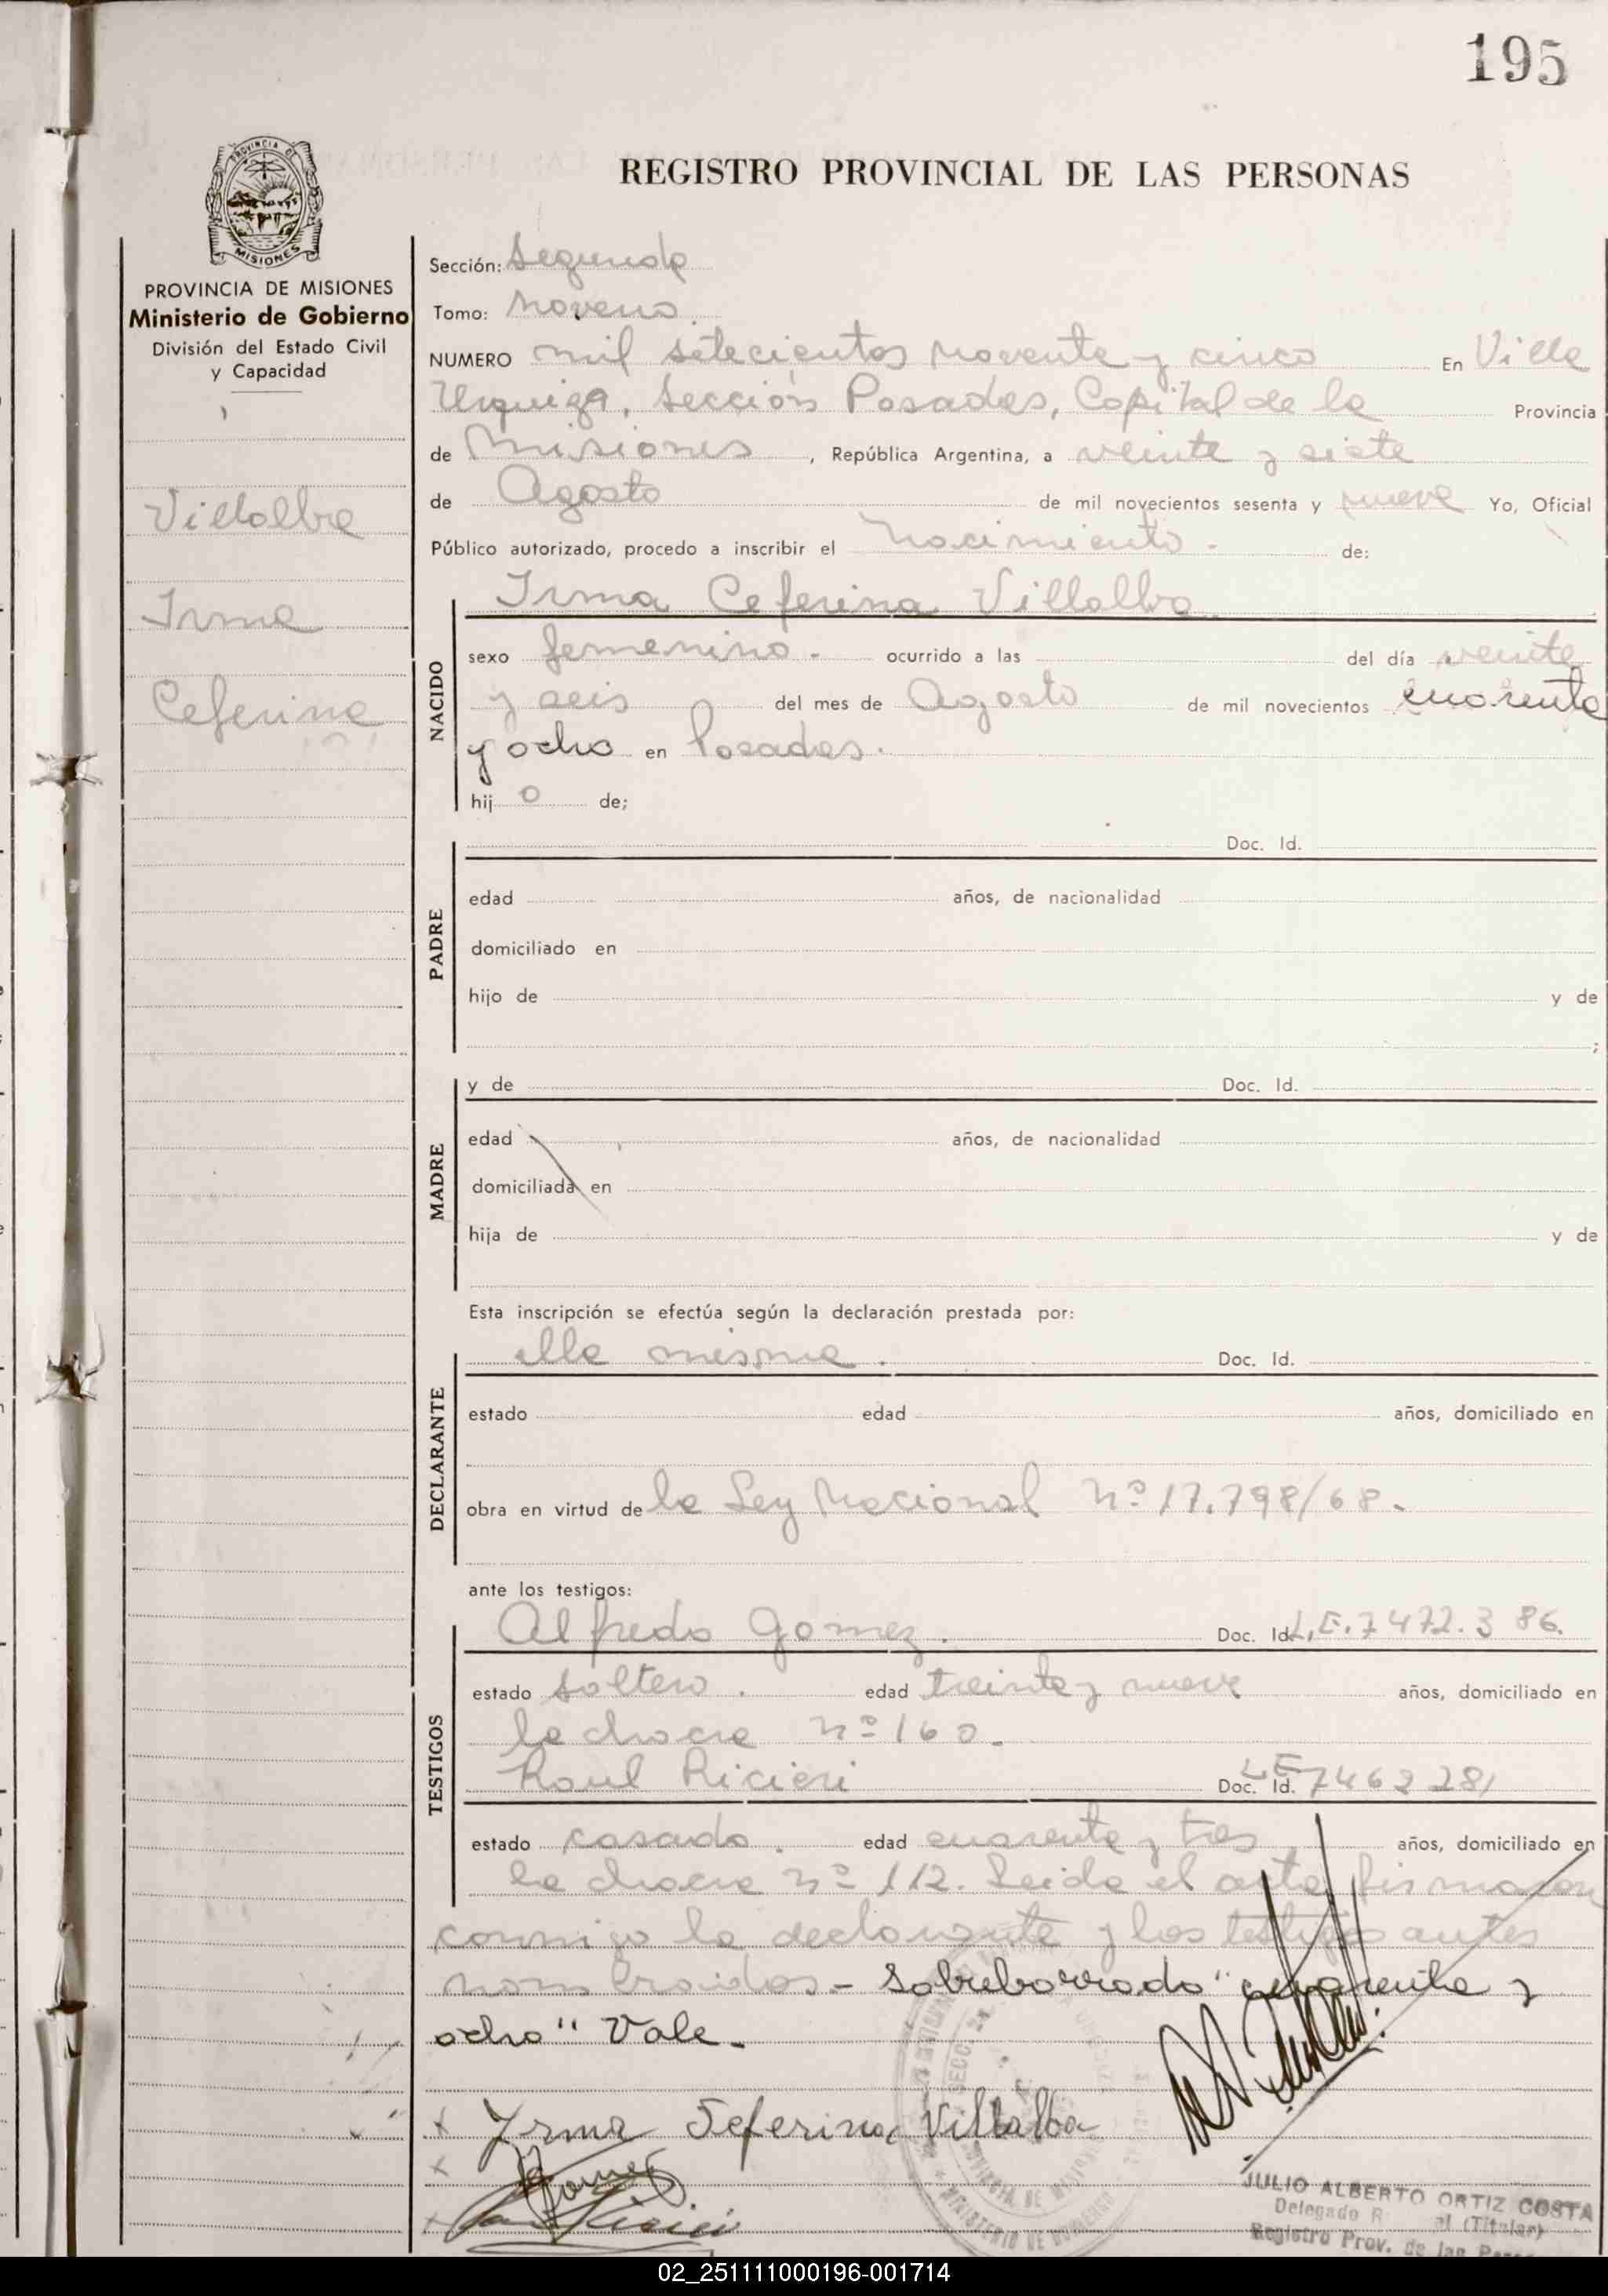 195
PROVINCIA DE
MISIONES
REGISTRO PROVINCIAL DE LAS PERSONAS
PROVINCIA DE MISIONES
Ministerio de Gobierno
División del Estado Civil
y Capacidad
Villalba
Irma
Ceferina
Sección: Segunda
Tomo: Noveno
NUMERO mil setecientos noventa y cinco En Villa
Urquiza, Sección Posadas, Capital de la Provincia
de Misiones, República Argentina, a veinte y siete
de Agosto de mil novecientos sesenta y nueve Yo, Oficial
Público autorizado, procedo a inscribir el Nacimiento - de:
NACIDO
Irma Ceferina Villalba
sexo femenino - ocurrido a las del día veinte
y seis del mes de Agosto de mil novecientos cuarenta
y ocho en Posadas.
hij o de;
PADRE
Doc. Id.
edad años, de nacionalidad
domiciliado en
hijo de y de
;
MADRE
y de Doc. Id.
edad años, de nacionalidad
domiciliada en
hija de y de
Esta inscripción se efectúa según la declaración prestada por:
DECLARANTE
ella misma. Doc. Id.
estado edad años, domiciliado en
obra en virtud de la Ley Nacional Nº 17.798/68.
ante los testigos:
TESTIGOS
Alfredo Gomez. Doc. Id. L.E. 7472.386.
estado soltero. edad treinta y nueve años, domiciliado en
la chacra nº 160.
Raul Ricieri Doc. Id. LE 7462281
estado casado. edad cuarenta y tres años, domiciliado en
la chacra nº 112. Leida el acta firmaron
conmigo la declarante y los testigos antes
nombrados.- Sobreborrado "cuarenta y
ocho" Vale.
x Irma Seferina Villalba
x Gomez
x
JULIO ALBERTO ORTIZ COSTA
Delegado (Titular)
Registro Prov. de las
02_251111000196-001714